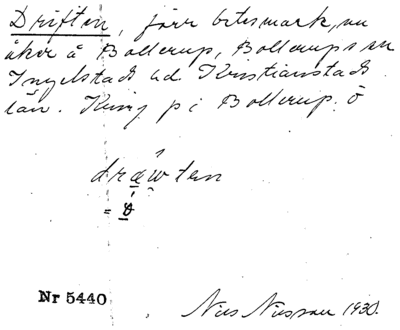 Driften, förr betesmark, nu
åker å Bollerup, Bollerups sn
Ingelstads hd Kristianstads
län. Kring p i Bollerup. ö
dræwten
= ö
Nr 5440
Nils Nilsson 1930.